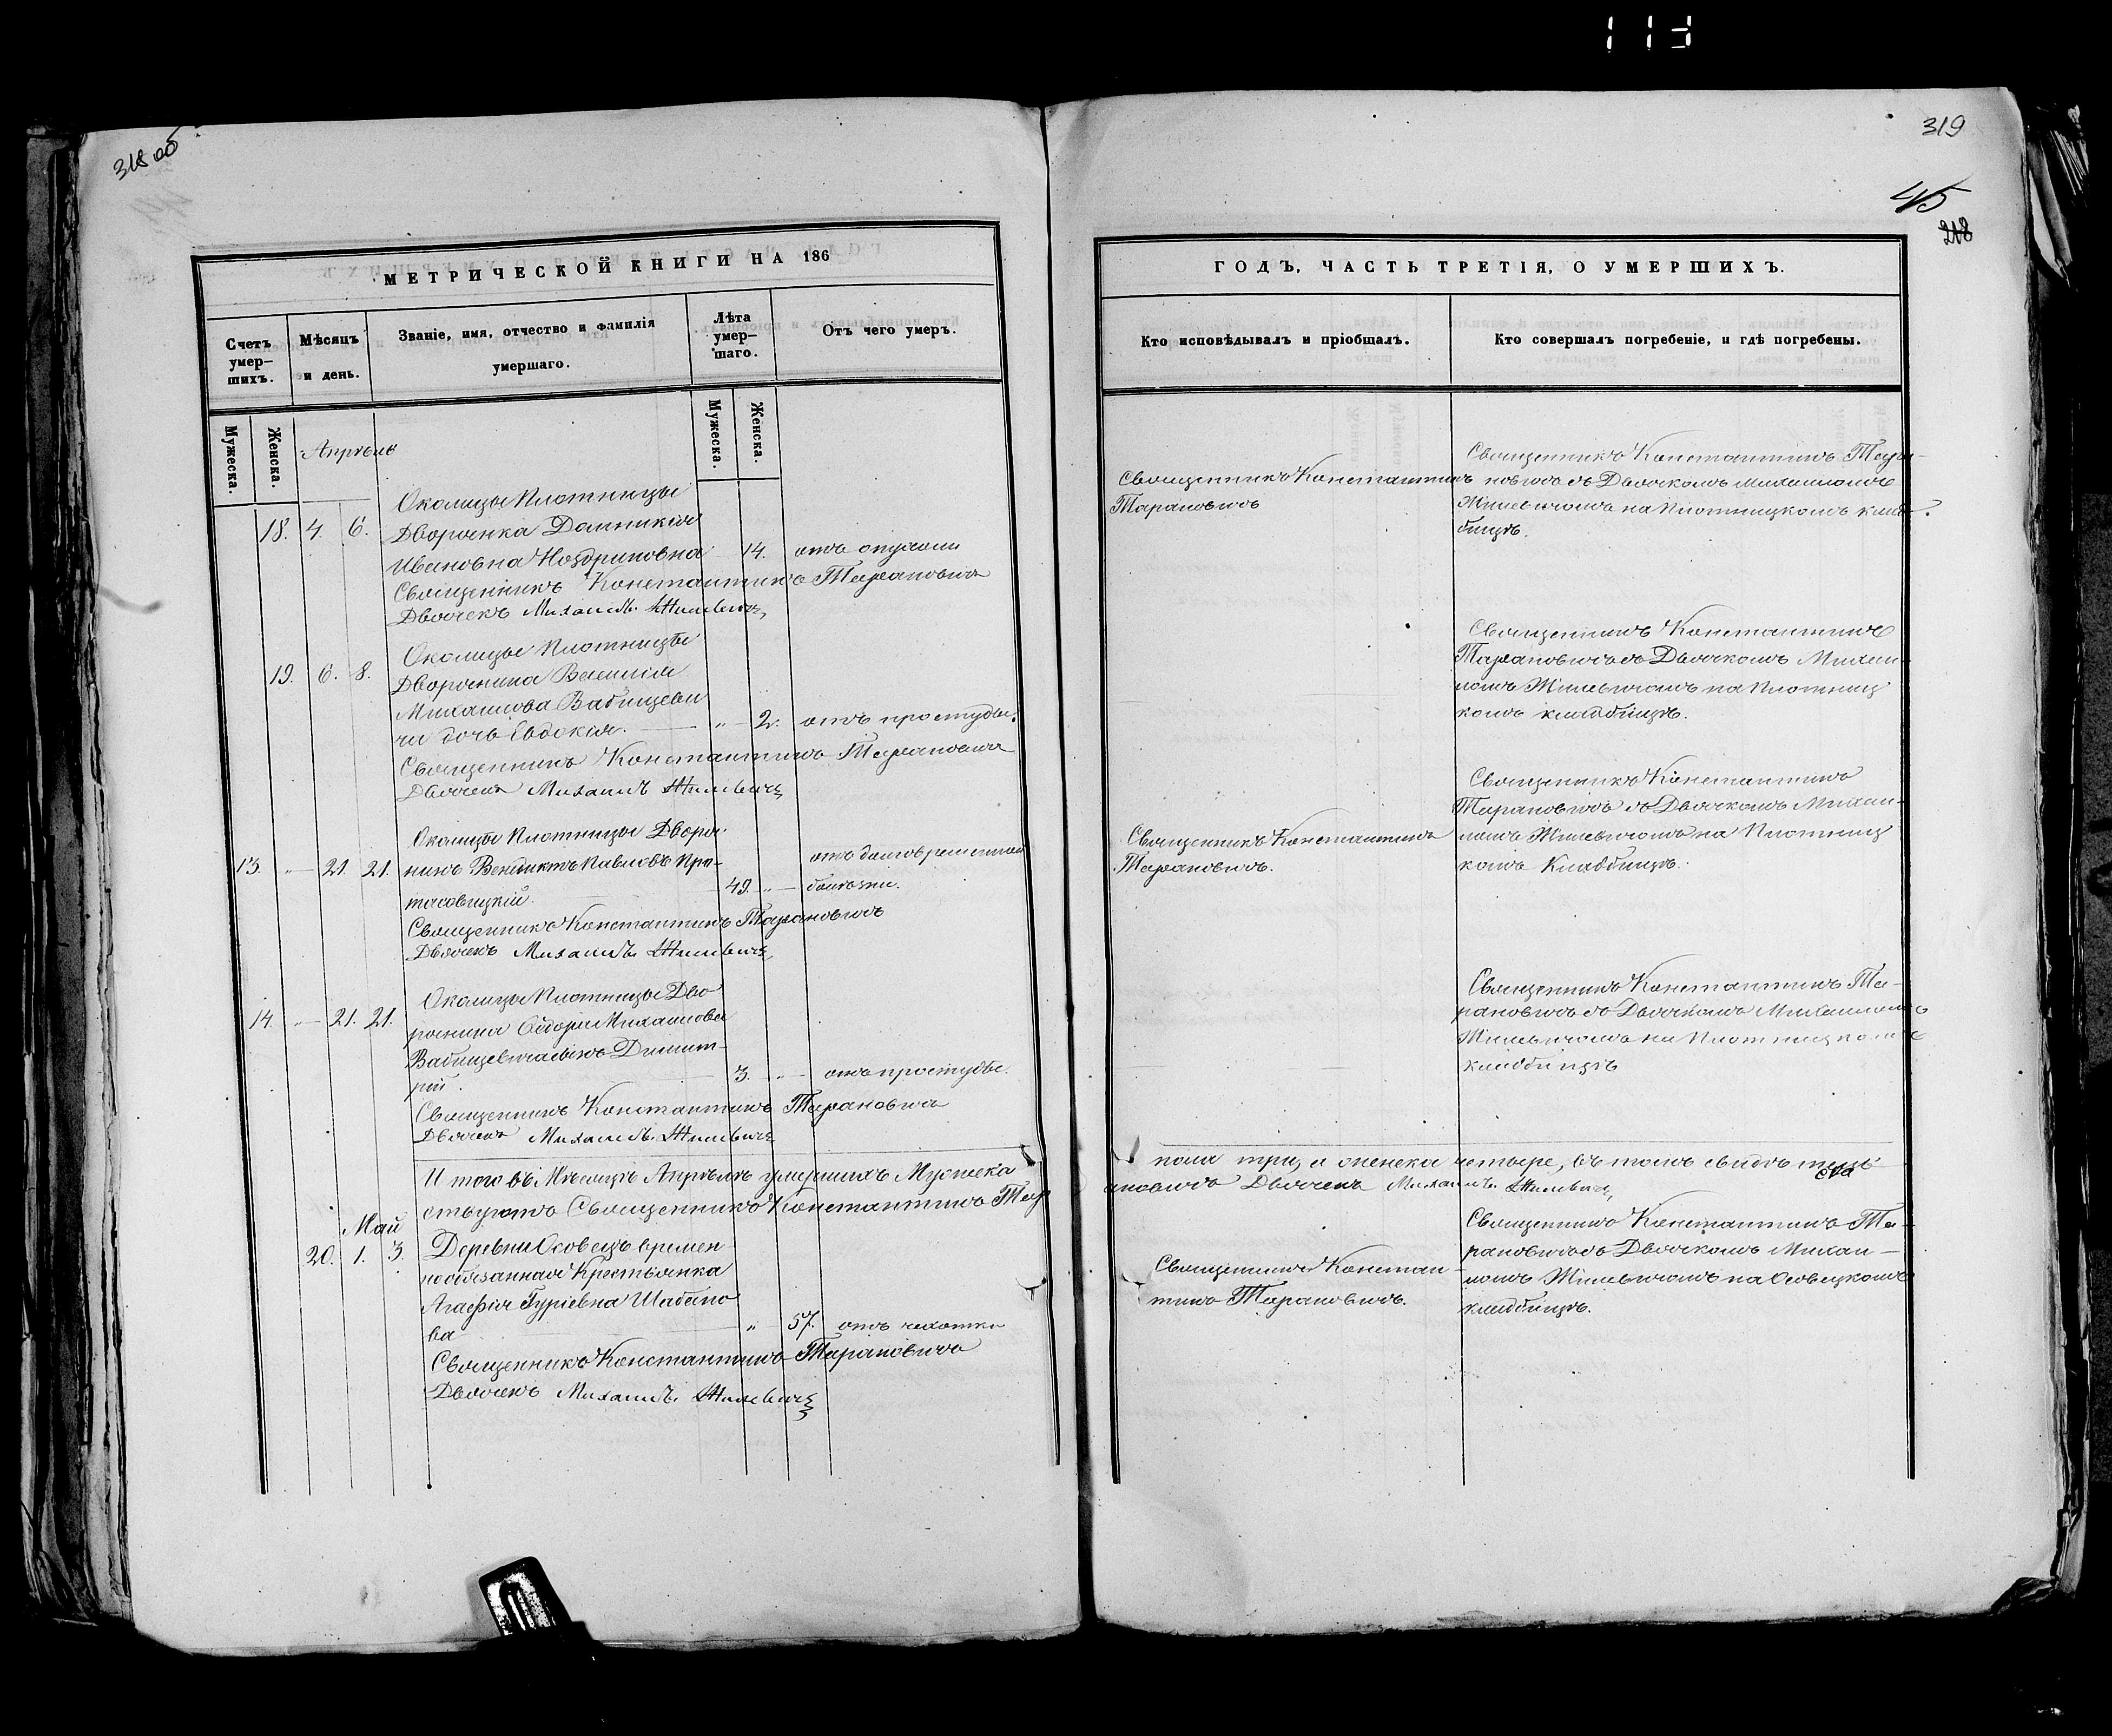 318 об
МЕТРИЧЕСКОЙ КНИГИ НА 186
Счетъ умер-
шихъ.
Мѣсяцъ
и день.
Званіе, имя, отчество и фамилія
умершаго.
Лѣта
умер-
шаго.
Отъ чего умеръ.
Мужеска.
Женска.
Мужеска.
Женска.
Апрѣль
Околицы Плотницы
18. 4. 6. Дворянка Домникія
Ивановна Ноздриновна 14. отъ опухоли
Священникъ Константинъ Тарановичъ
Дьячекъ Михаилъ Жилевичъ
Околицы Плотницы
19. 6. 8. Дворянина Василія
Михаилова Вабищеви
ча дочь Евдокія. „ 2. отъ простуды.
Священникъ Константинъ Тарановичъ
Дьячекъ Михаилъ Жилевичъ
Околицы Плотницы Дворя
13. „ 21. 21. нинъ Венедиктъ Павловъ Про-
тасовицкій. 49. „ отъ долговременной
болѣзни.
Священникъ Константинъ Тарановичъ
Дьячекъ Михаилъ Жилевичъ
Околицы Плотницы Дво
14. „ 21. 21. рянина Ѳедора Михаилова
Вабищевича сынъ Димит-
рій. 3. „ отъ простуды.
Священникъ Константинъ Тарановичъ
Дьячекъ Михаилъ Жилевичъ
И того въ Мѣсяцѣ Апрѣлѣ умершихъ Мужеска
ствуютъ Священникъ Константинъ Тар
Май
20. 1. 3. Деревни Осовецъ времен
нообязанная Крестьянка
Агафія Гуріевна Шабано
ва „ 57. отъ чахотки
Священникъ Константинъ Тарановичъ
Дьячекъ Михаилъ Жилевичъ
319
45
218
ГОДЪ, ЧАСТЬ ТРЕТІЯ, О УМЕРШИХЪ.
Кто исповѣдывалъ и пріобщалъ.
Кто совершалъ погребеніе, и гдѣ погребены.
Священникъ Константинъ
Тарановичъ
Священникъ Константинъ Тара-
новичъ съ Дьячкомъ Михаиломъ
Жилевичомъ на Плотницкомъ клад-
бищѣ.
Священникъ Константинъ
Тарановичъ съ Дьячкомъ Михаи-
ломъ Жилевичомъ на Плотниц
комъ кладбищѣ.
Священникъ Константинъ
Тарановичъ.
Священникъ Константинъ
Тарановичъ съ Дьячкомъ Михаи-
ломъ Жилевичомъ на Плотниц
комъ Кладбищѣ.
Священникъ Константинъ Та-
рановичъ съ Дьячкомъ Михаиломъ
Жилевичомъ на Плотницкомъ
кладбищѣ
пола три, а женска четыре, въ томъ свидѣтель
ановичъ Дьячекъ Михаилъ Жилевичъ
Священникъ Констан-
тинъ Тарановичъ.
Священникъ Константинъ Та-
рановичъ съ Дьячкомъ Михаи-
ломъ Жилевичомъ на Осовецкомъ
кладбищѣ.